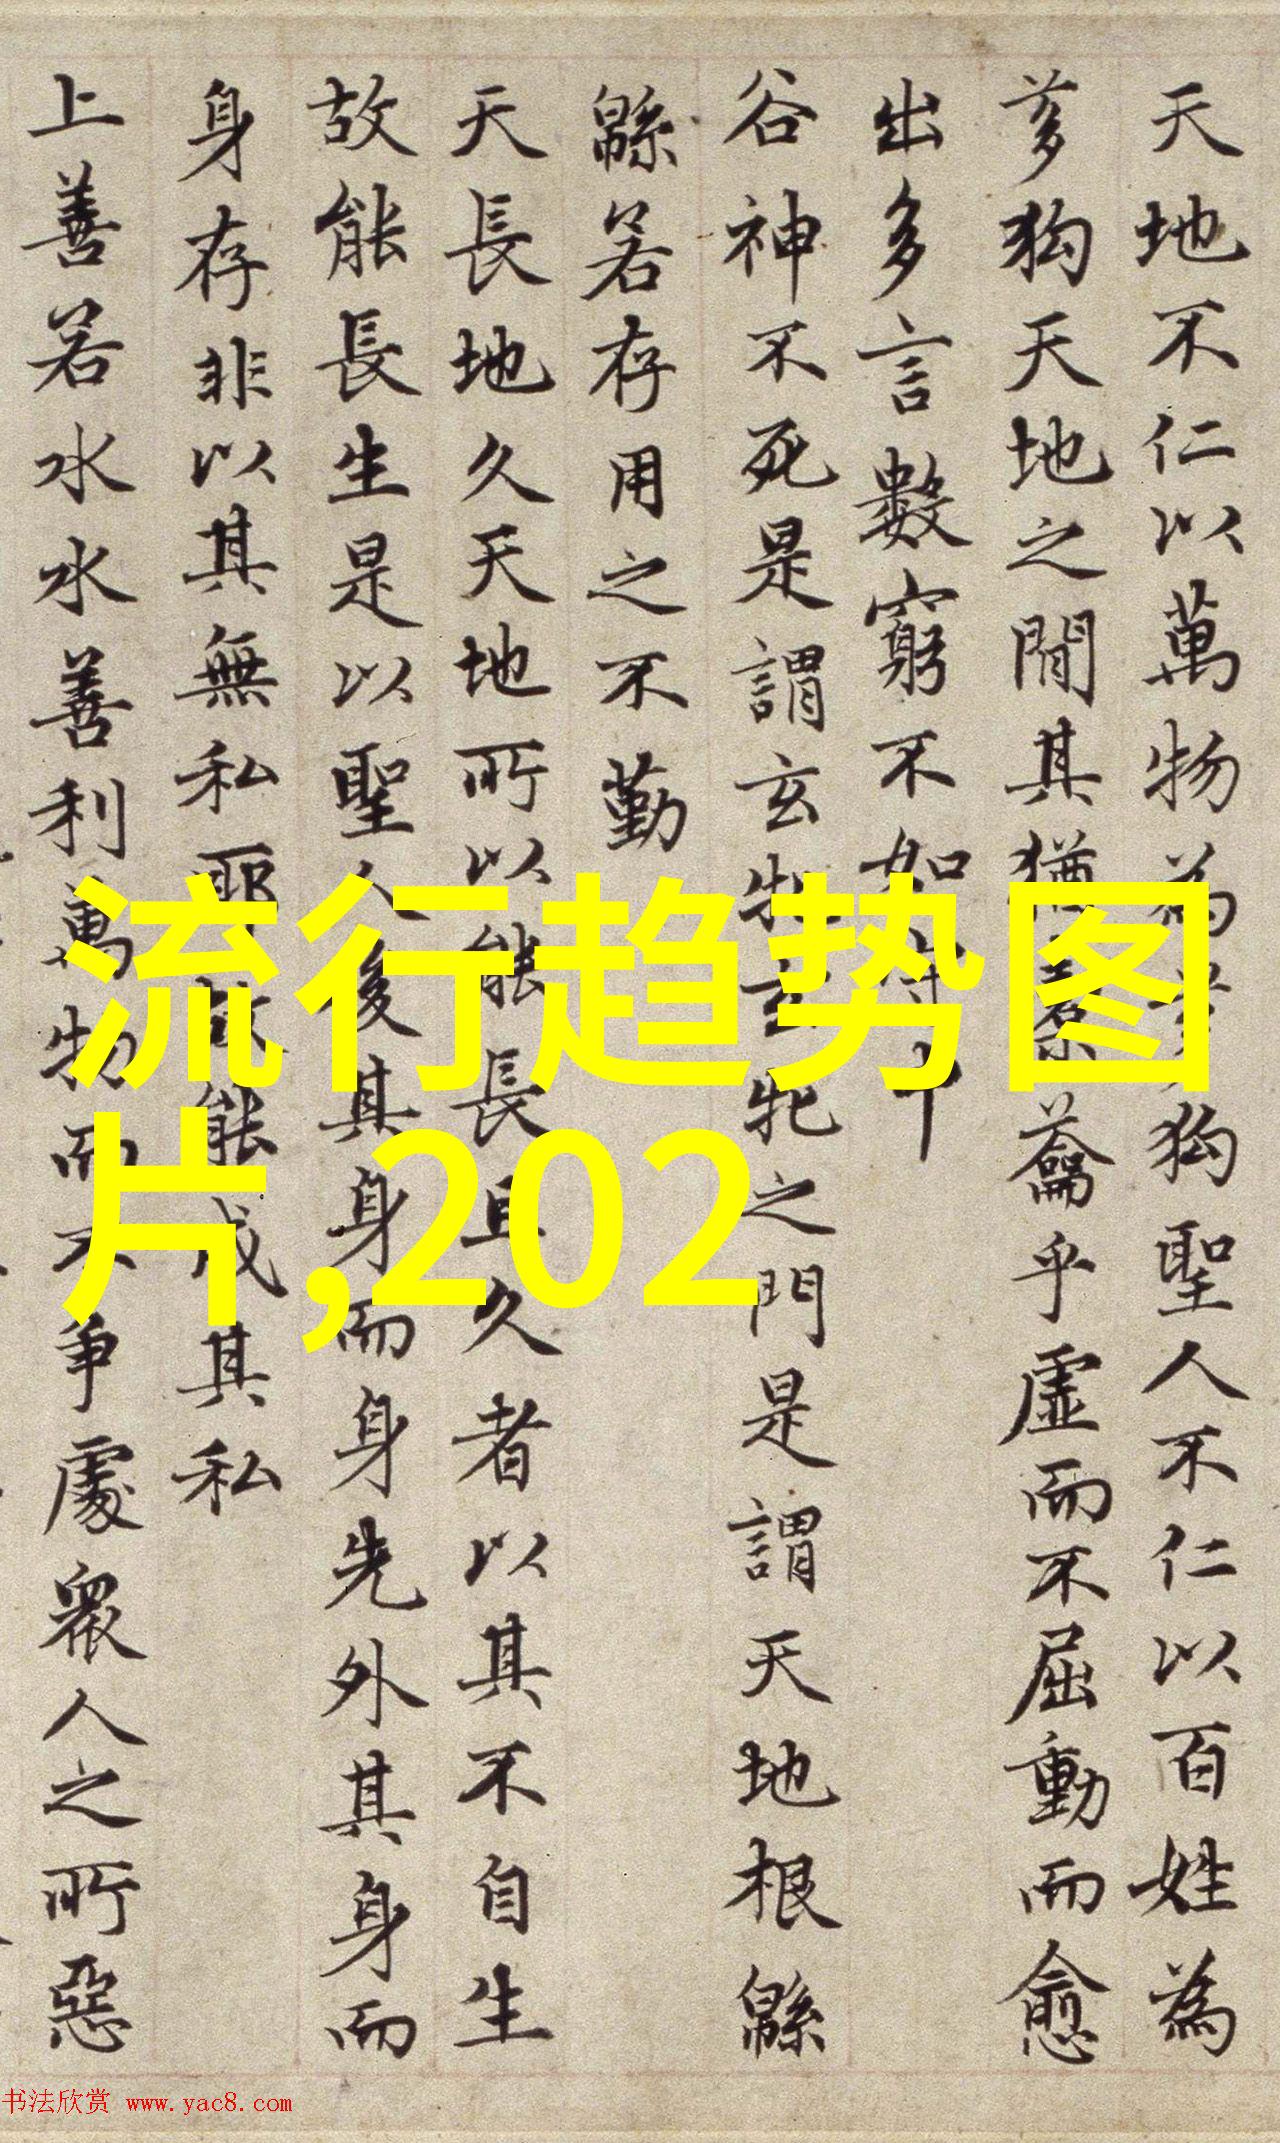 天地不仁以萬物為芻狗聖人不仁以百姓為
芻狗天地之間其猶橐籥乎虛而不屈動而愈
出多言數窮不如守中
谷神不死是謂玄牝玄牝之門是謂天地根緜
緜若存用之不勤
天長地久天地所以能長且久者以其不自生
故能長生是以聖人後其身而身先外其身而
身存非以其無私耶故能成其私
上善若水水善利萬物而不爭處眾人之所惡
流行趋势图
片,202
书法欣赏 www.yac8.com